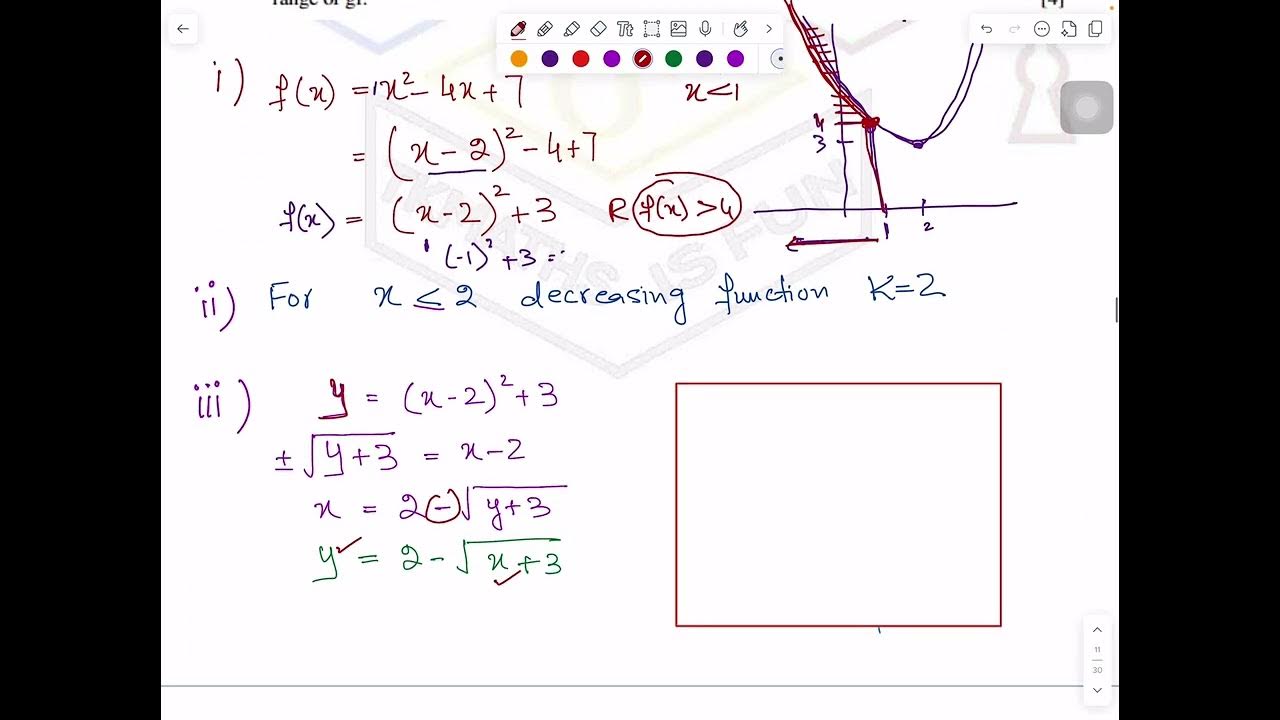 range of gf. [4]
i) f(x) = x² - 4x + 7 x < 1
= (x - 2)² - 4 + 7
f(x) = (x - 2)² + 3 R f(x) > 4
(-1)² + 3 =
4
3
1 2
ii) For x ≤ 2 decreasing function K=2
iii) y = (x - 2)² + 3
± √y + 3 = x - 2
x = 2 - √y + 3
y = 2 - √x + 3
MATHS IS FUN
11
30